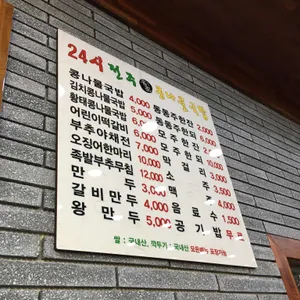 24시 전주 콩나물국밥
콩나물국밥 4,000 동동주한잔 2,000
김치콩나물국밥 5,000 동동주한되 6,000
황태콩나물국밥 6,000 모주한잔 2,000
어린이떡갈비 6,000 모주한되 10,000
부추야채전 7,000 막걸리 3,000
오징어한마리 10,000 소주 3,000
족발부추무침 12,000 맥주 4,000
만두 3,000 음료수 1,500
갈비만두 4,000 공기밥 무료
왕만두 5,000
쌀 : 국내산, 깍두기 : 국내산 모든메뉴 포장가능